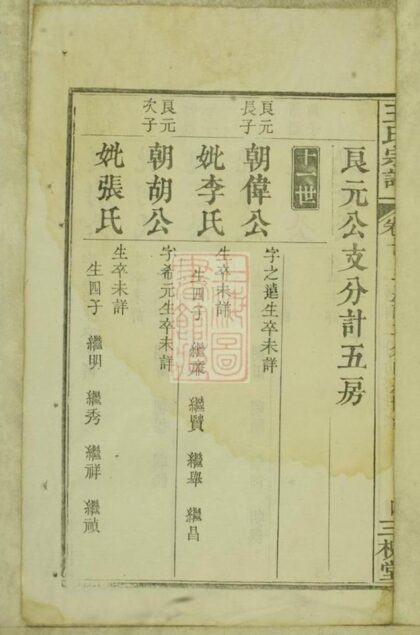 王氏宗譜
三槐堂
良元公支分計五房
十一世
良元長子
朝偉公
字之遠生卒未詳
妣李氏
生卒未詳
生四子 繼業 繼賢 繼舉 繼昌
良元次子
朝胡公
字希元生卒未詳
妣張氏
生卒未詳
生四子 繼明 繼秀 繼祥 繼禎